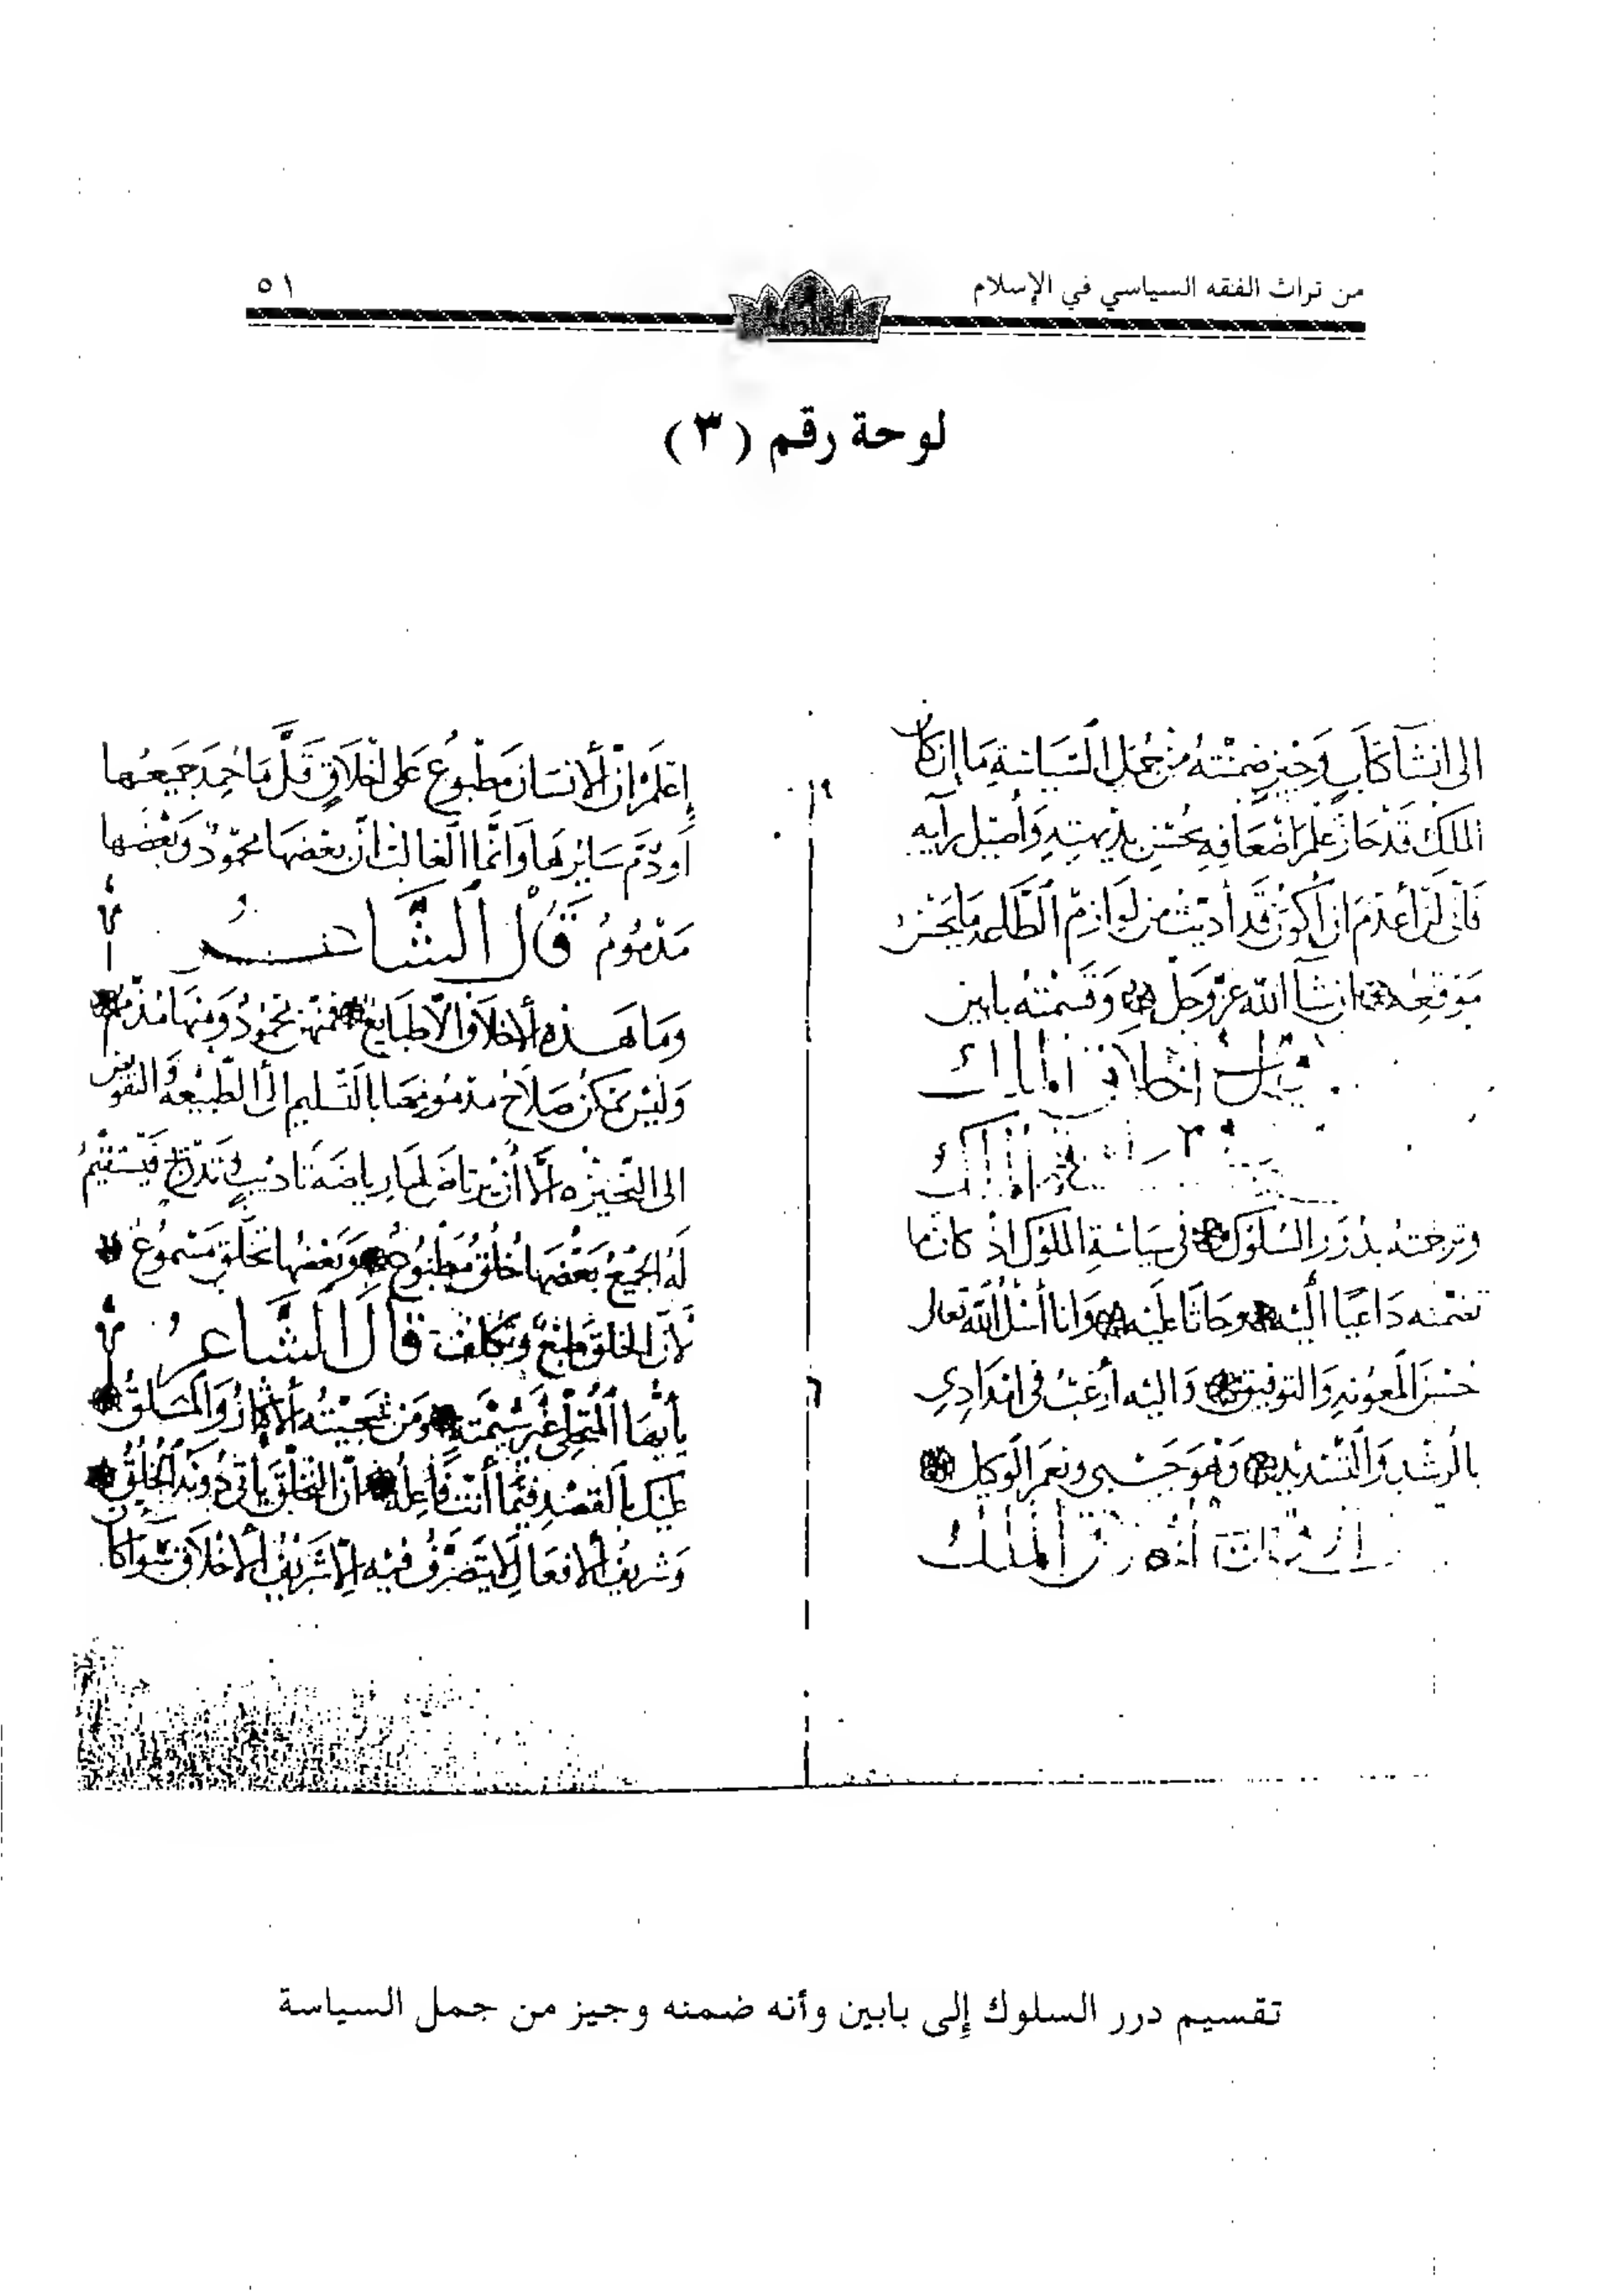 من تراث الفقه السياسي في الإسلام
٥١
لوحة رقم (٣)
الى انشآ كتاب وجيز ضمنته من جمل السياسة ما ان كان
الملك قد حاز علم اضعافه بحسن بديهته وأصيل رآيه
فانى لن أعدم ان أكون قد أديت من لوازم الطاعه ما يحسن
موقعه ان شآ الله عز وجل وقسمته بابين
اخلاق الملك
الملك
وترجمته بدرر السلوك في سياسة الملوك اذ كان ما
تضمنه داعيًا اليه وحاثا عليه وانا أسئل الله تعالى
حسن المعونه والتوفيق واليه أرغب فى امدادى
بالرشد والتسديد وهو حسبى ونعم الوكيل
الملك
إعلم ان الانسان مطبوع على اخلاق قل ما حمد جميعها
او ذم سايرها وانما الغالب ان بعضها محمود وبعضها
مذموم قال الشاعر
وما هذه الاخلاق الا طبايع فمنهن محمود ومنها مذمم
وليس يمكن صلاح مذمومها بالتسليم الى الطبيعه والتفويض
الى النحيزه الا أن يرتاض لها رياضة تاديب وتدرج فيستقيم
له الجميع بعضها خلق مطبوع وبعضها تخلق مسموع
لان الخلق طبع وتكلف قال الشاعر
يا أيها المتحلى غير شيمته ومن سجيته الاكثار والملق
عليك بالقصد فيما أنت فاعله ان التخلق يأتى دونه الخلق
وشريف الافعال لا يتصرف فيه الا شريف الاخلاق سوآ كان
تقسيم درر السلوك إلى بابين وأنه ضمنه وجيز من جمل السياسة